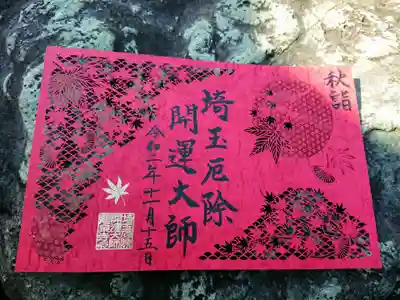 秋詣
埼玉厄除
開運大師
令和二年十一月十五日